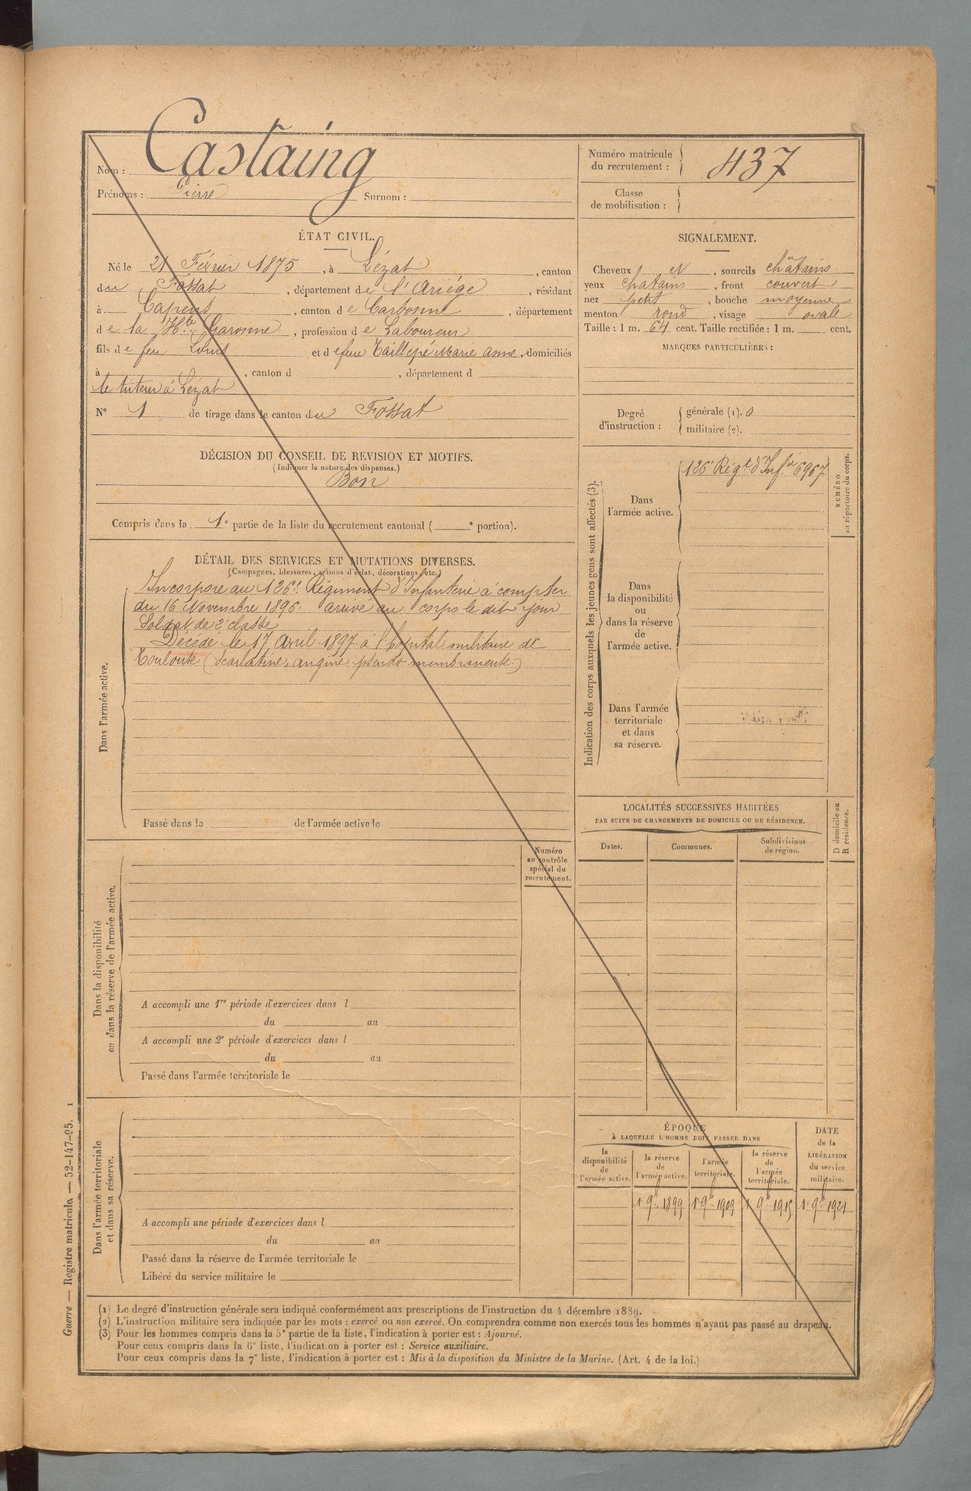 Nom : Castaing
Prénoms : Pierre Surnom :
Numéro matricule du recrutement : 437
Classe de mobilisation :
ÉTAT CIVIL.
Né le 21 Février 1875, à Lézat, canton
du Fossat, département de l'Ariège, résidant
à Capens, canton de Carbonne, département
de la Hte Garonne, profession de Laboureur
fils de feu Louis et de feue Taillepé Marie Anne, domiciliés
à , canton d , département d
le tuteur à Lézat
N° 1 de tirage dans le canton du Fossat
SIGNALEMENT.
Cheveux et , sourcils châtains
yeux chatains , front couvert
nez petit , bouche moyenne
menton rond , visage ovale
Taille : 1 m. 64 cent. Taille rectifiée : 1 m. cent.
MARQUES PARTICULIÈRES :
Degré d'instruction : générale (1). 0
militaire (2).
DÉCISION DU CONSEIL DE REVISION ET MOTIFS.
(Indiquer la nature des dispenses.)
Bon
Compris dans la 1e partie de la liste du recrutement cantonal ( e portion).
DÉTAIL DES SERVICES ET MUTATIONS DIVERSES.
(Campagnes, blessures, actions d'éclat, décorations, etc.)
Dans l'armée active.
Incorporé au 126e Régiment d'Infanterie à compter
du 16 Novembre 1896. arrivé au corps le dit jour
Soldat de 2e classe
Décédé le 17 Avril 1897 à l'hôpital militaire de
Toulouse (Scarlatine, angine pseudo-membraneuse)
Passé dans la de l'armée active le
Indication des corps auxquels les jeunes gens sont affectés (3).
Dans l'armée active.
126e Régt d'Infie 6967
NUMÉRO au répertoire du corps.
Dans la disponibilité ou dans la réserve de l'armée active.
Dans l'armée territoriale et dans sa réserve.
LOCALITÉS SUCCESSIVES HABITÉES
PAR SUITE DE CHANGEMENTS DE DOMICILE OU DE RÉSIDENCE.
D domicile ou R résidence.
Dates. Communes. Subdivisions de région.
Numéro au contrôle spécial du recrutement.
Dans la disponibilité ou dans la réserve de l'armée active.
A accompli une 1re période d'exercices dans l
du au
A accompli une 2e période d'exercices dans l
du au
Passé dans l'armée territoriale le
Dans l'armée territoriale et dans sa réserve.
A accompli une période d'exercices dans l
du au
Passé dans la réserve de l'armée territoriale le
Libéré du service militaire le
ÉPOQUE
À LAQUELLE L'HOMME DOIT PASSER DANS
la disponibilité de l'armée active.
la réserve de l'armée active.
l'armée territoriale.
la réserve de l'armée territoriale.
DATE de la LIBÉRATION du service militaire.
1er 9bre 1899 1er 9bre 1909 1er 9bre 1915 1er 9bre 1921
(1) Le degré d'instruction générale sera indiqué conformément aux prescriptions de l'instruction du 4 décembre 1889.
(2) L'instruction militaire sera indiquée par les mots : exercé ou non exercé. On comprendra comme non exercés tous les hommes n'ayant pas passé au drapeau.
(3) Pour les hommes compris dans la 5e partie de la liste, l'indication à porter est : Ajourné.
Pour ceux compris dans la 6e liste, l'indication à porter est : Service auxiliaire.
Pour ceux compris dans la 7e liste, l'indication à porter est : Mis à la disposition du Ministre de la Marine. (Art. 4 de la loi.)
Guerre — Registre matricule. — 52-147-95. 1